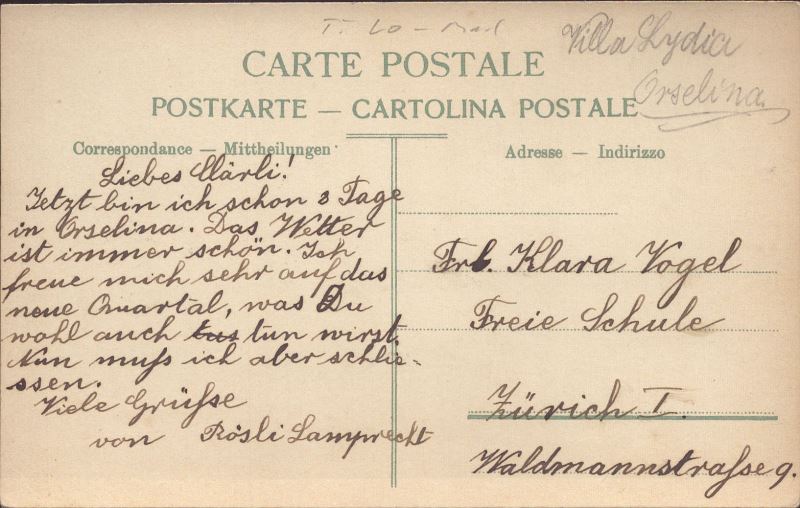 Villa Lydia
Orselina.
CARTE POSTALE
POSTKARTE — CARTOLINA POSTALE
Correspondance — Mittheilungen
Adresse — Indirizzo
Liebes Clärli!
Jetzt bin ich schon 3 Tage
in Orselina. Das Wetter
ist immer schön. Ich
freue mich sehr auf das
neue Quartal, was Du
wohl auch tus tun wirst.
Nun muß ich aber schlie-
ssen.
Viele Grüße
von Rösli Lamprecht
Frl. Klara Vogel
Freie Schule
Zürich I.
Waldmannstraße 9.